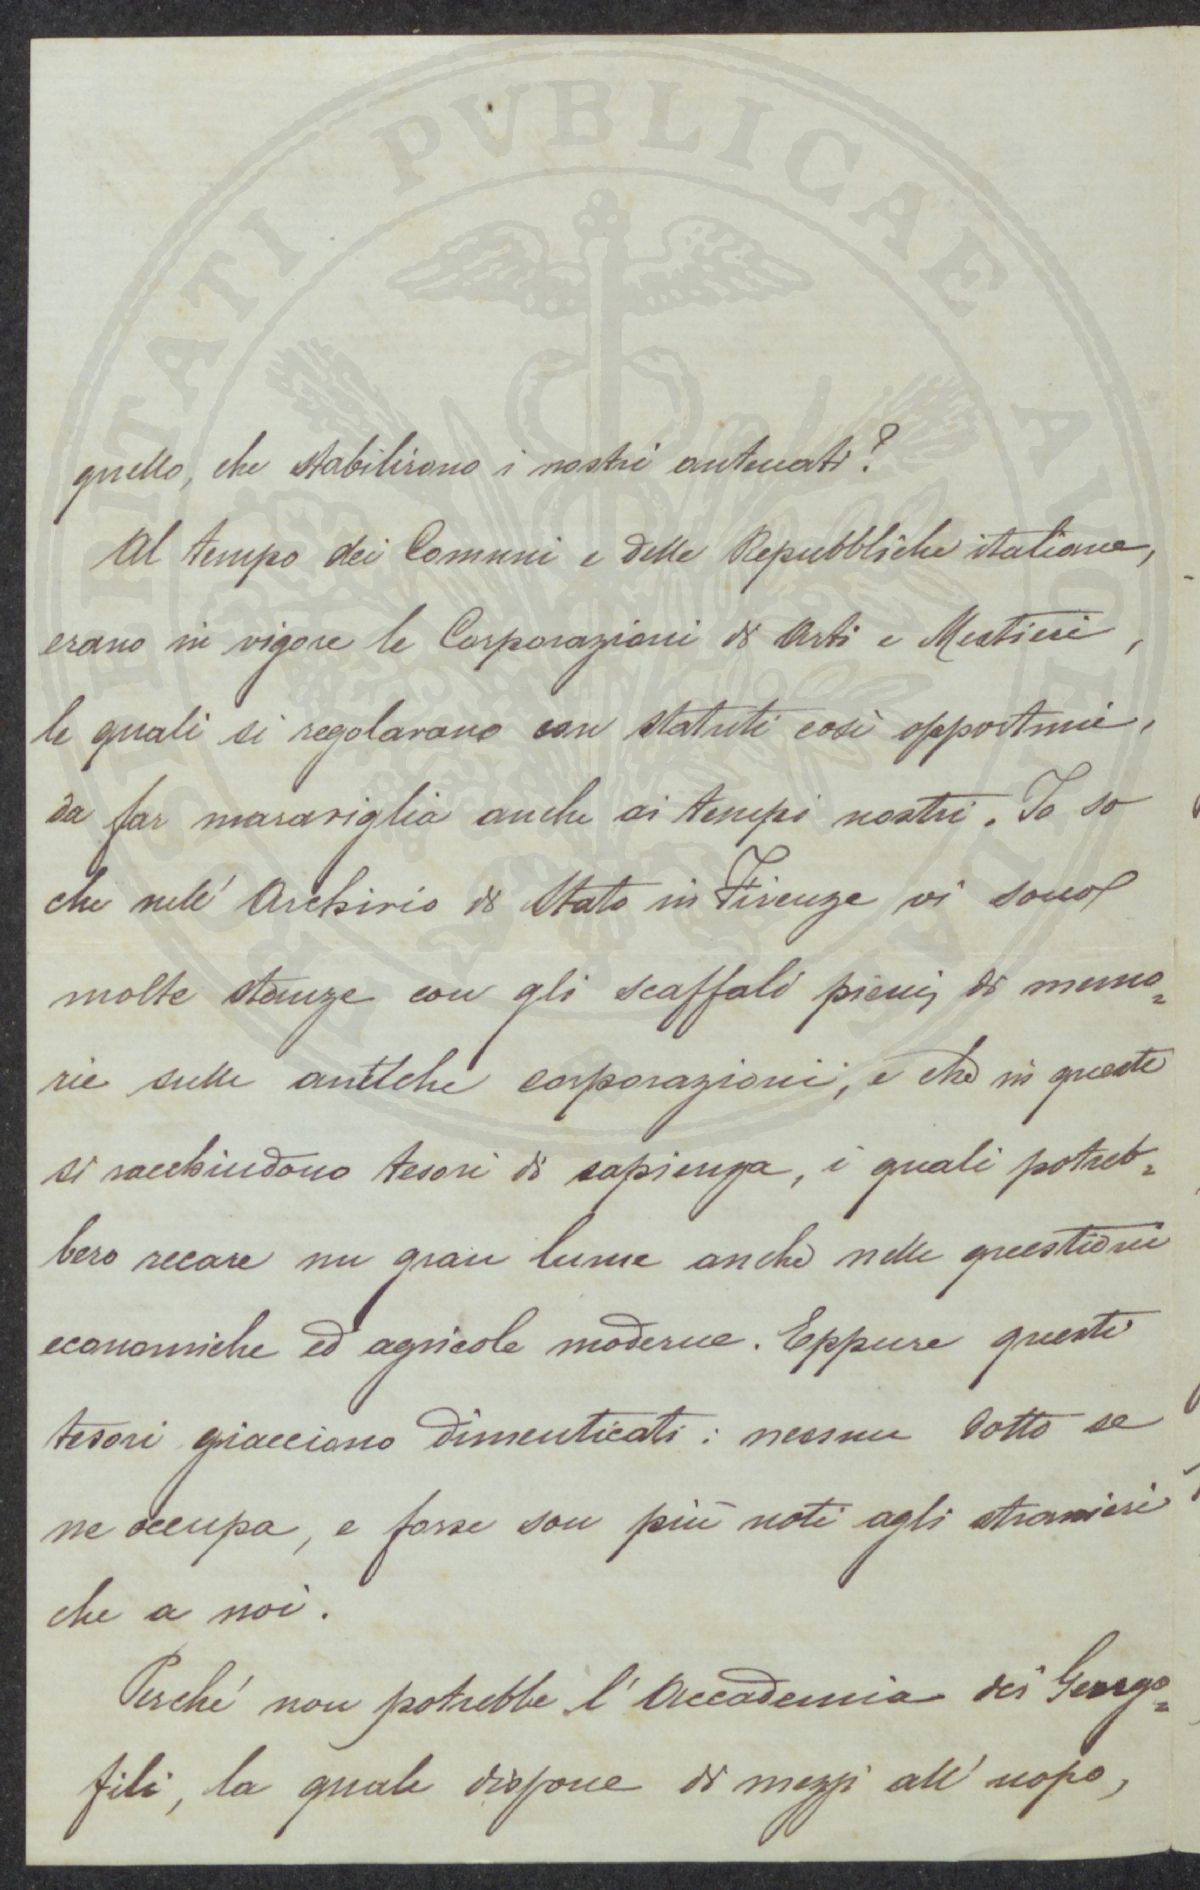 PROSPERITATI PUBLICAE AUGENDAE
quello, che stabilirono i nostri antenati?
Al tempo dei Comuni e delle Repubbliche italiane,
erano in vigore le Corporazioni di Arti e Mestieri,
le quali si regolavano con statuti così opportuni,
da far maraviglia anche ai tempi nostri. Io so
che nell' Archivio di Stato in Firenze vi sono
molte stanze con gli scaffali pieni, di memo=
rie sulle antiche corporazioni, e che in queste
si racchiudono tesori di sapienza, i quali potreb=
bero recare un gran lume anche nelle questioni
economiche ed agricole moderne. Eppure questi
tesori giacciono dimenticati: nessun dotto se
ne occupa, e forse son più noti agli stranieri
che a noi.
Perché non potrebbe l' Accademia dei Georgo=
fili, la quale dispone di mezzi all' uopo,